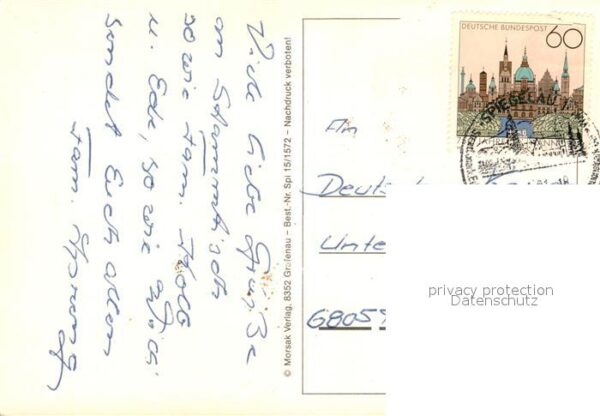 Viele liebe Grüße
am Stammtisch
so wie Fam. Holb
u. Ede, so wie
sendet Euch allen
Fam.
© Morsak Verlag, 8352 Grafenau – Best.-Nr. Spi 15/1572 – Nachdruck verboten!
DEUTSCHE BUNDESPOST 60
SPIEGELAU 1
An
Deut
Unte
6805
privacy protection
Datenschutz